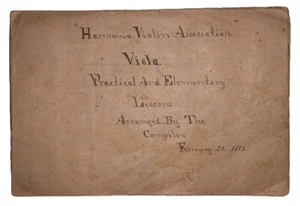 "Harmonia Violin Association"
Viola
Practical And Elementary
Lessons
Arranged By The
Compiler
February 20